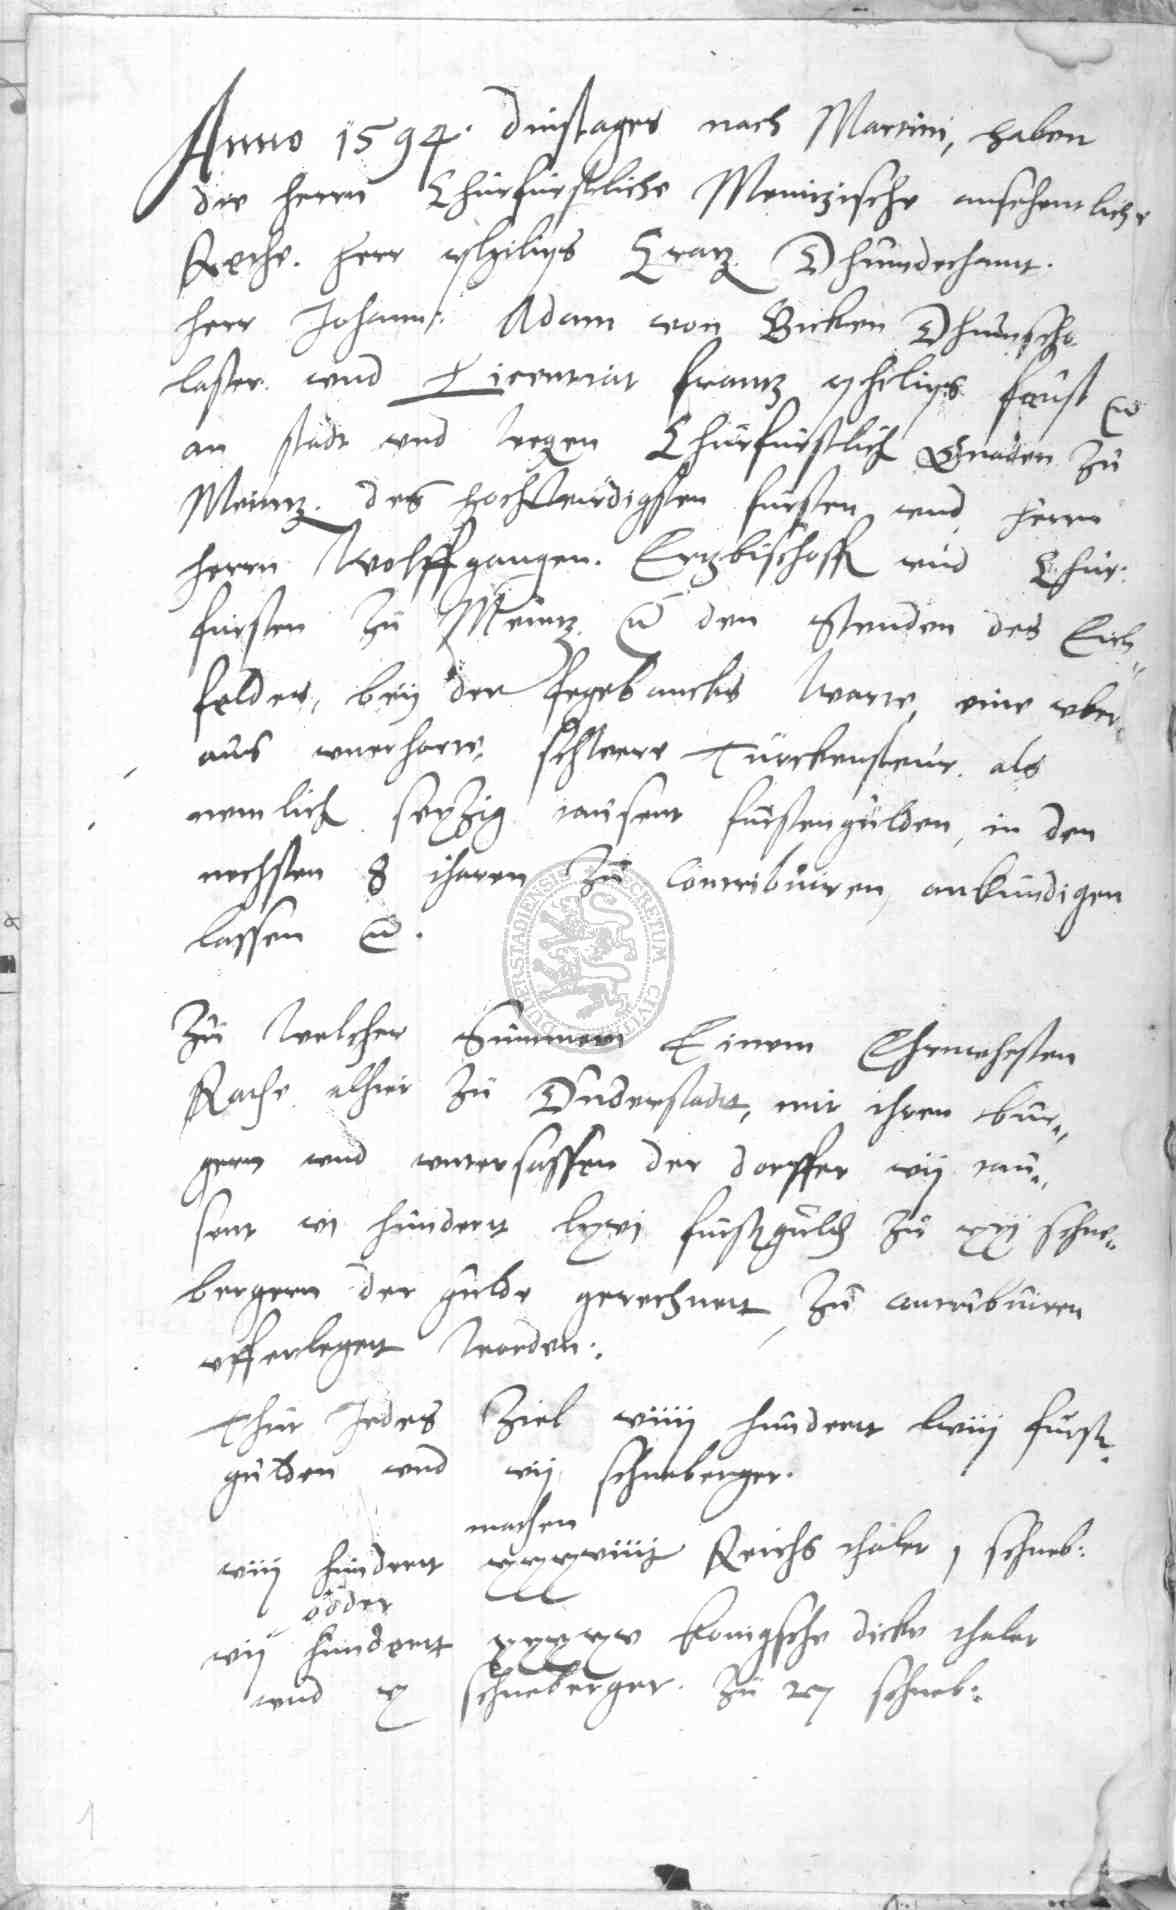 Anno 1594. Dinstages nach Martini, haben
die herrn Churfurstliche Meintzische ansehentliche
Rethe. Herr Philips Cratz Dhumdechant.
Herr Johann: Adam von Bicken Dhumscho
laster. vnd Licentiat Frantz Philips Faust ꝛc
an stadt vnd wegen Churfurstlich Gnaden zu
Meintz. des hochwurdigsten fursten vnd herrn
herrn Wolffgangen. Ertzbischoff vnd Chur:
fursten zu Meintz ꝛc den Stenden des Eich„
feldes, bey der Segebancks Warte, eine vber„
aus vnerhorte, schwere Turckensteur. als
nemlich sexzig tausent furstengulden, in den
nechsten 8 iharen zu contribuiren, ankundigen
lassen ꝛc.
Zu welcher Summen Einem Ehrnvhesten
Rathe alhier zu Duderstadt, mit ihren bur„
gern vnd vntersassen der dorffer vij tau„
sent vi hundert lxvi furstgulden zu xxj schne„
bergern der gulde gerechnett zu contribuiren
vfferlegett worden:
Thut Jedes Ziel viiij hundert lviij furst„
gulden vnd vij schneberger.
machen
viij hundertt xxxviiij Reichs thaler j schneb:
odder
vij hundertt xxxxv konigsche dicke thaler
vnd x schneberger. zu 27 schneb:
DUDERSTADIENSIS SECRETUM CIVITATIS
1